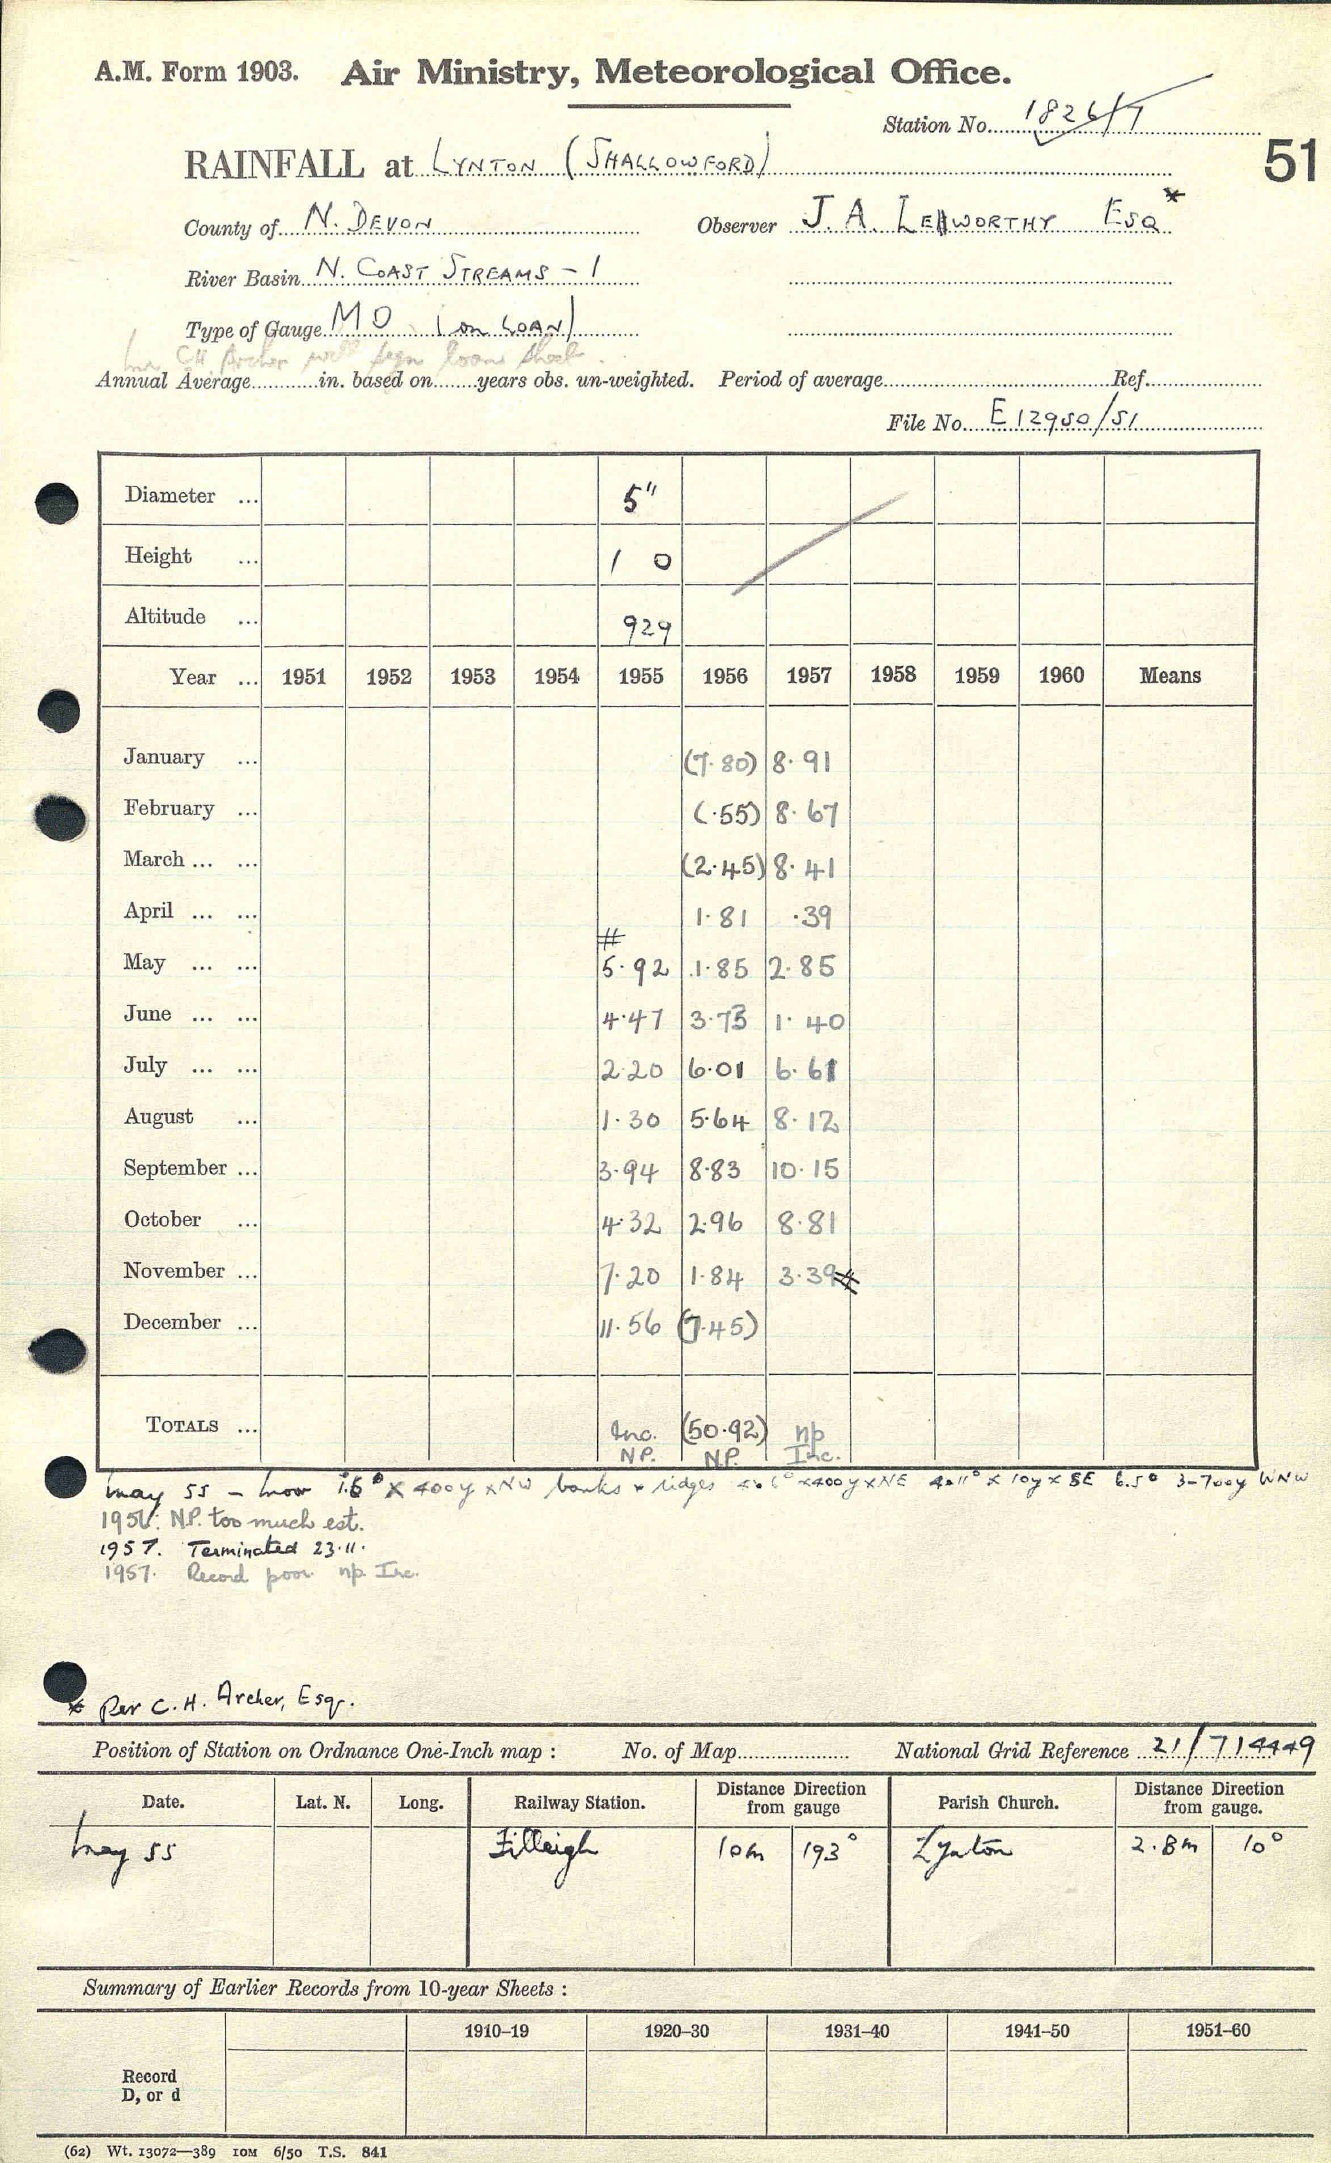 A.M. Form 1903. Air Ministry, Meteorological Office.
Station No. 1826/7
51
RAINFALL at LYNTON (SHALLOWFORD)
County of N. DEVON Observer J. A. LEWORTHY ESQ *
River Basin N. COAST STREAMS - 1
Type of Gauge MO (on LOAN)
CH Archer will sign loan sheet.
Annual Average in. based on years obs. un-weighted. Period of average Ref.
File No. E12950/51
Diameter ... 5"
Height ... 1 0
Altitude ... 929
Year ... 1951 1952 1953 1954 1955 1956 1957 1958 1959 1960 Means
January ... (7.80) 8.91
February ... (.55) 8.67
March ... ... (2.45) 8.41
April ... ... 1.81 .39
#
May ... ... 5.92 1.85 2.85
June ... ... 4.47 3.73 1.40
July ... ... 2.20 6.01 6.61
August ... 1.30 5.64 8.12
September ... 3.94 8.83 10.15
October ... 4.32 2.96 8.81
November ... 7.20 1.84 3.39 #
December ... 11.56 (7.45)
TOTALS ... Inc. (50.92) np
NP. N.P. Inc.
May 55 - Moor X 400y x NW banks & ridges x400y x NE 4.11° x 10y x SE 6.5° 3-700y WNW
1956. N.P. too much est.
1957. Terminated 23.11.
1957. Record poor np Inc.
* Per C. H. Archer, Esq.
Position of Station on Ordnance One-Inch map : No. of Map National Grid Reference 21/714449
Date. Lat. N. Long. Railway Station. Distance from gauge Direction Parish Church. Distance from gauge. Direction
May 55 Filleigh 10m 193° Lynton 2.8m 10°
Summary of Earlier Records from 10-year Sheets :
1910–19 1920–30 1931–40 1941–50 1951–60
Record
D, or d
(62) Wt. 13072—389 10M 6/50 T.S. 841